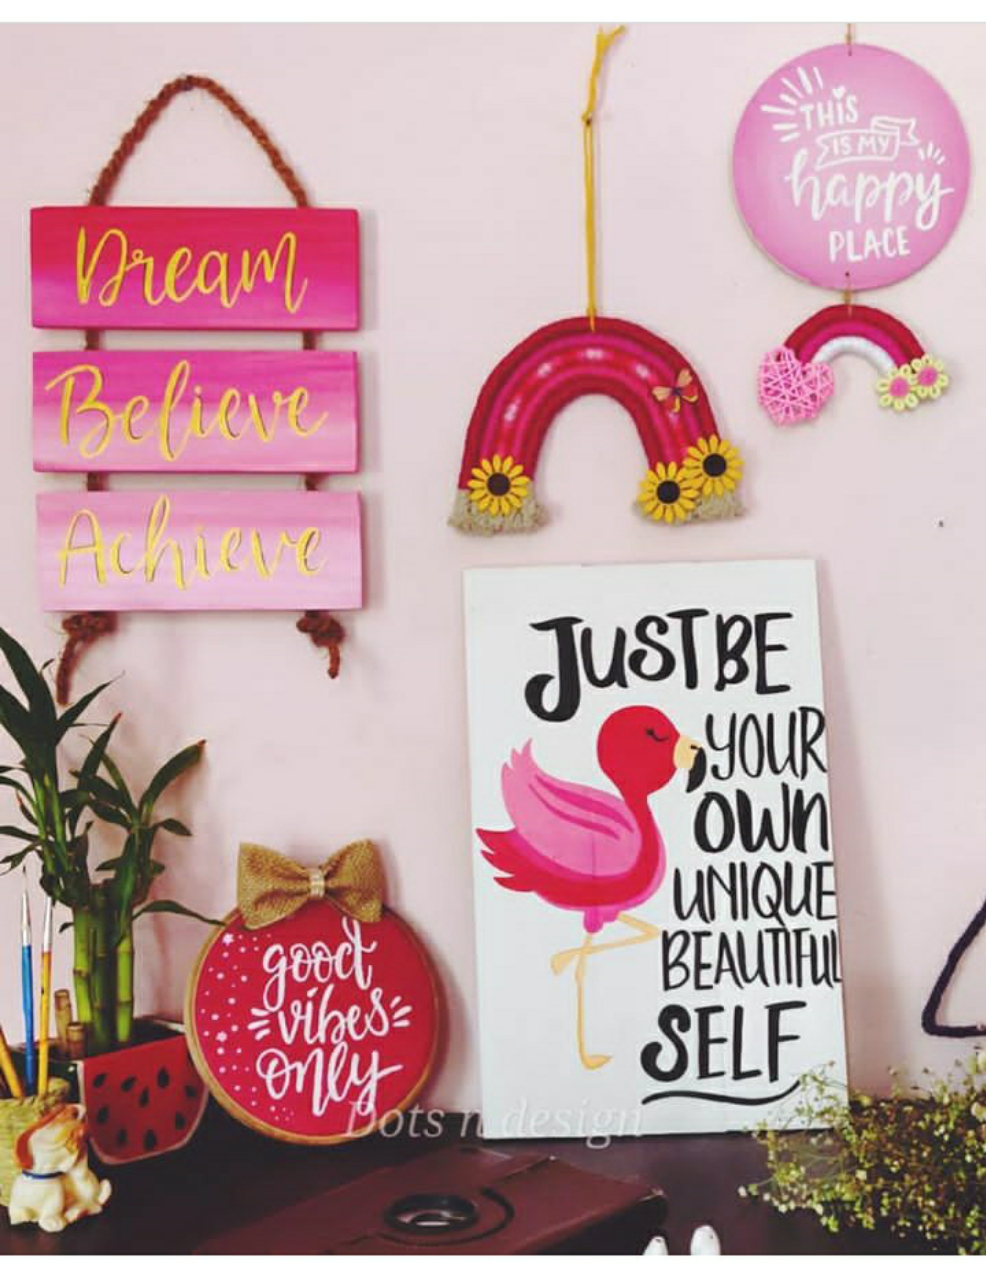 Dream
Believe
Achieve
THIS
IS MY
happy
PLACE
JUST BE
YOUR
OWN
UNIQUE
BEAUTIFUL
SELF
good
vibes
only
Dots n design